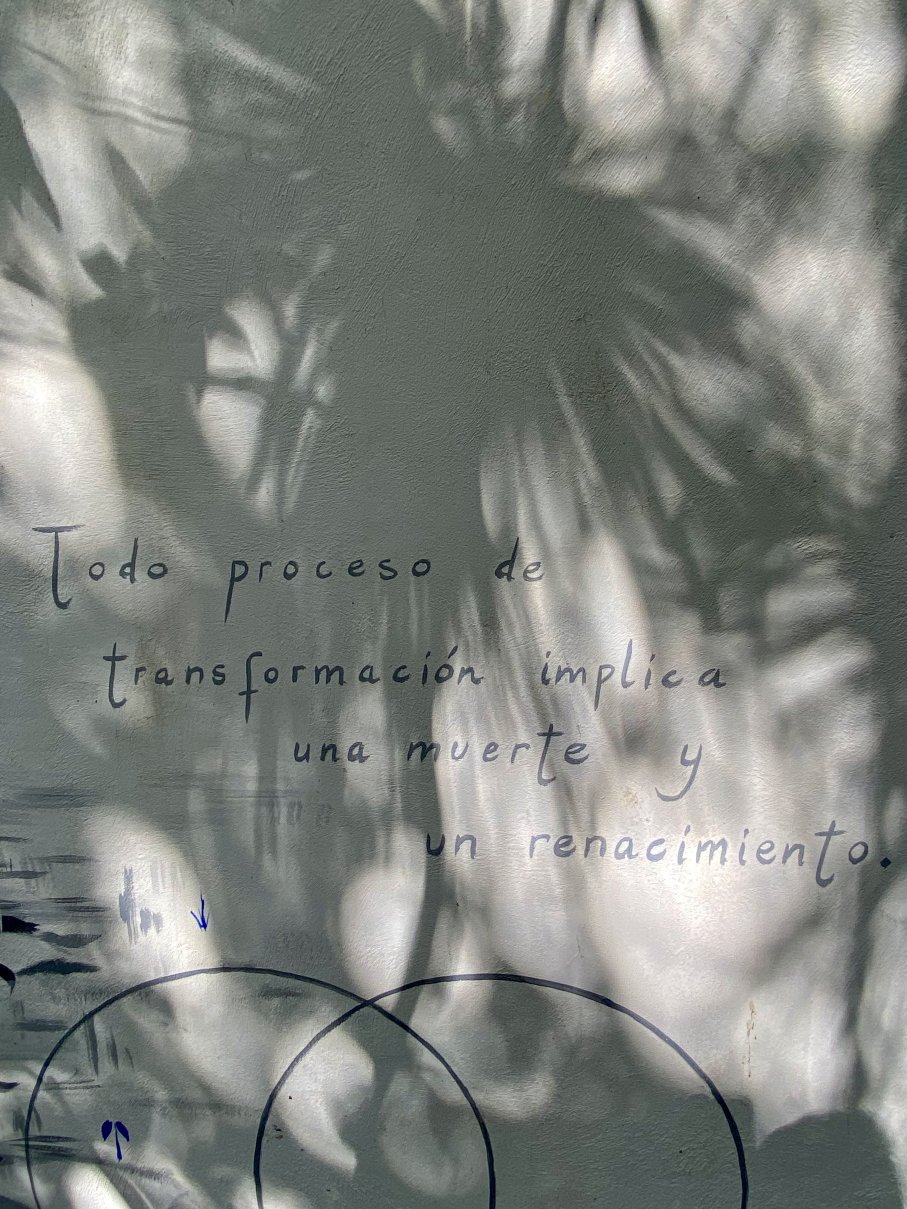 Todo proceso de
transformación implica
una muerte y
un renacimiento.